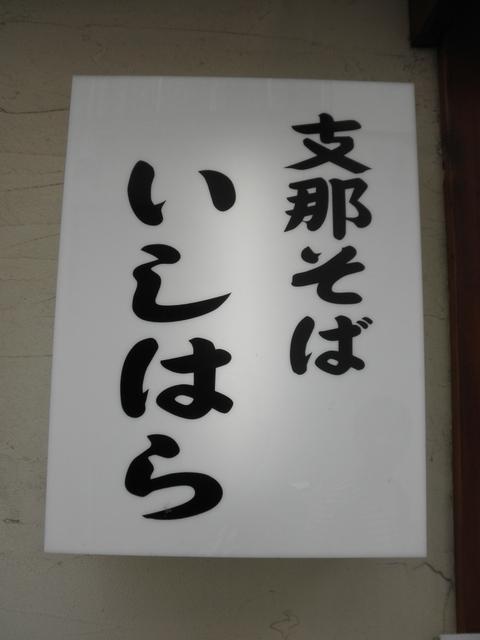 支那そば
いしはら